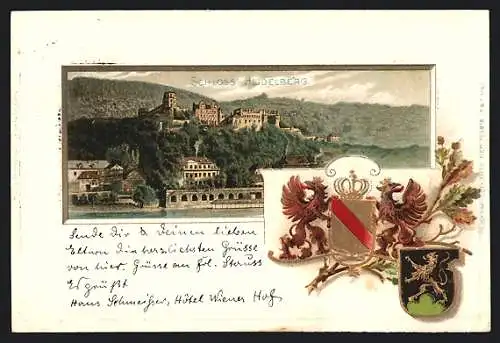 SCHLOSS HEIDELBERG
Sende Dir & Deinen lieben
Eltern die herzlichsten Grüsse
von hier. Grüsse an Frl. Strauss
Es grüßt
Hans Schmeißer, Hôtel Wiener Hof